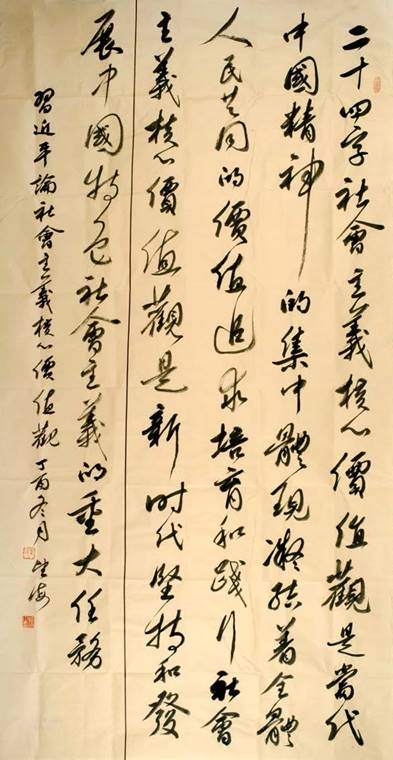 二十四字社會主義核心價值觀是當代
中國精神的集中體現凝結着全體
人民共同的價值追求培育和踐行社會
主義核心價值觀是新時代堅持和發
展中國特色社會主義的重大任務
習近平論社會主義核心價值觀丁酉冬月